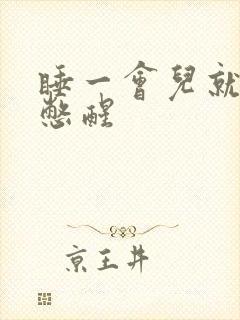 睡一會兒就
憋醒
京王井